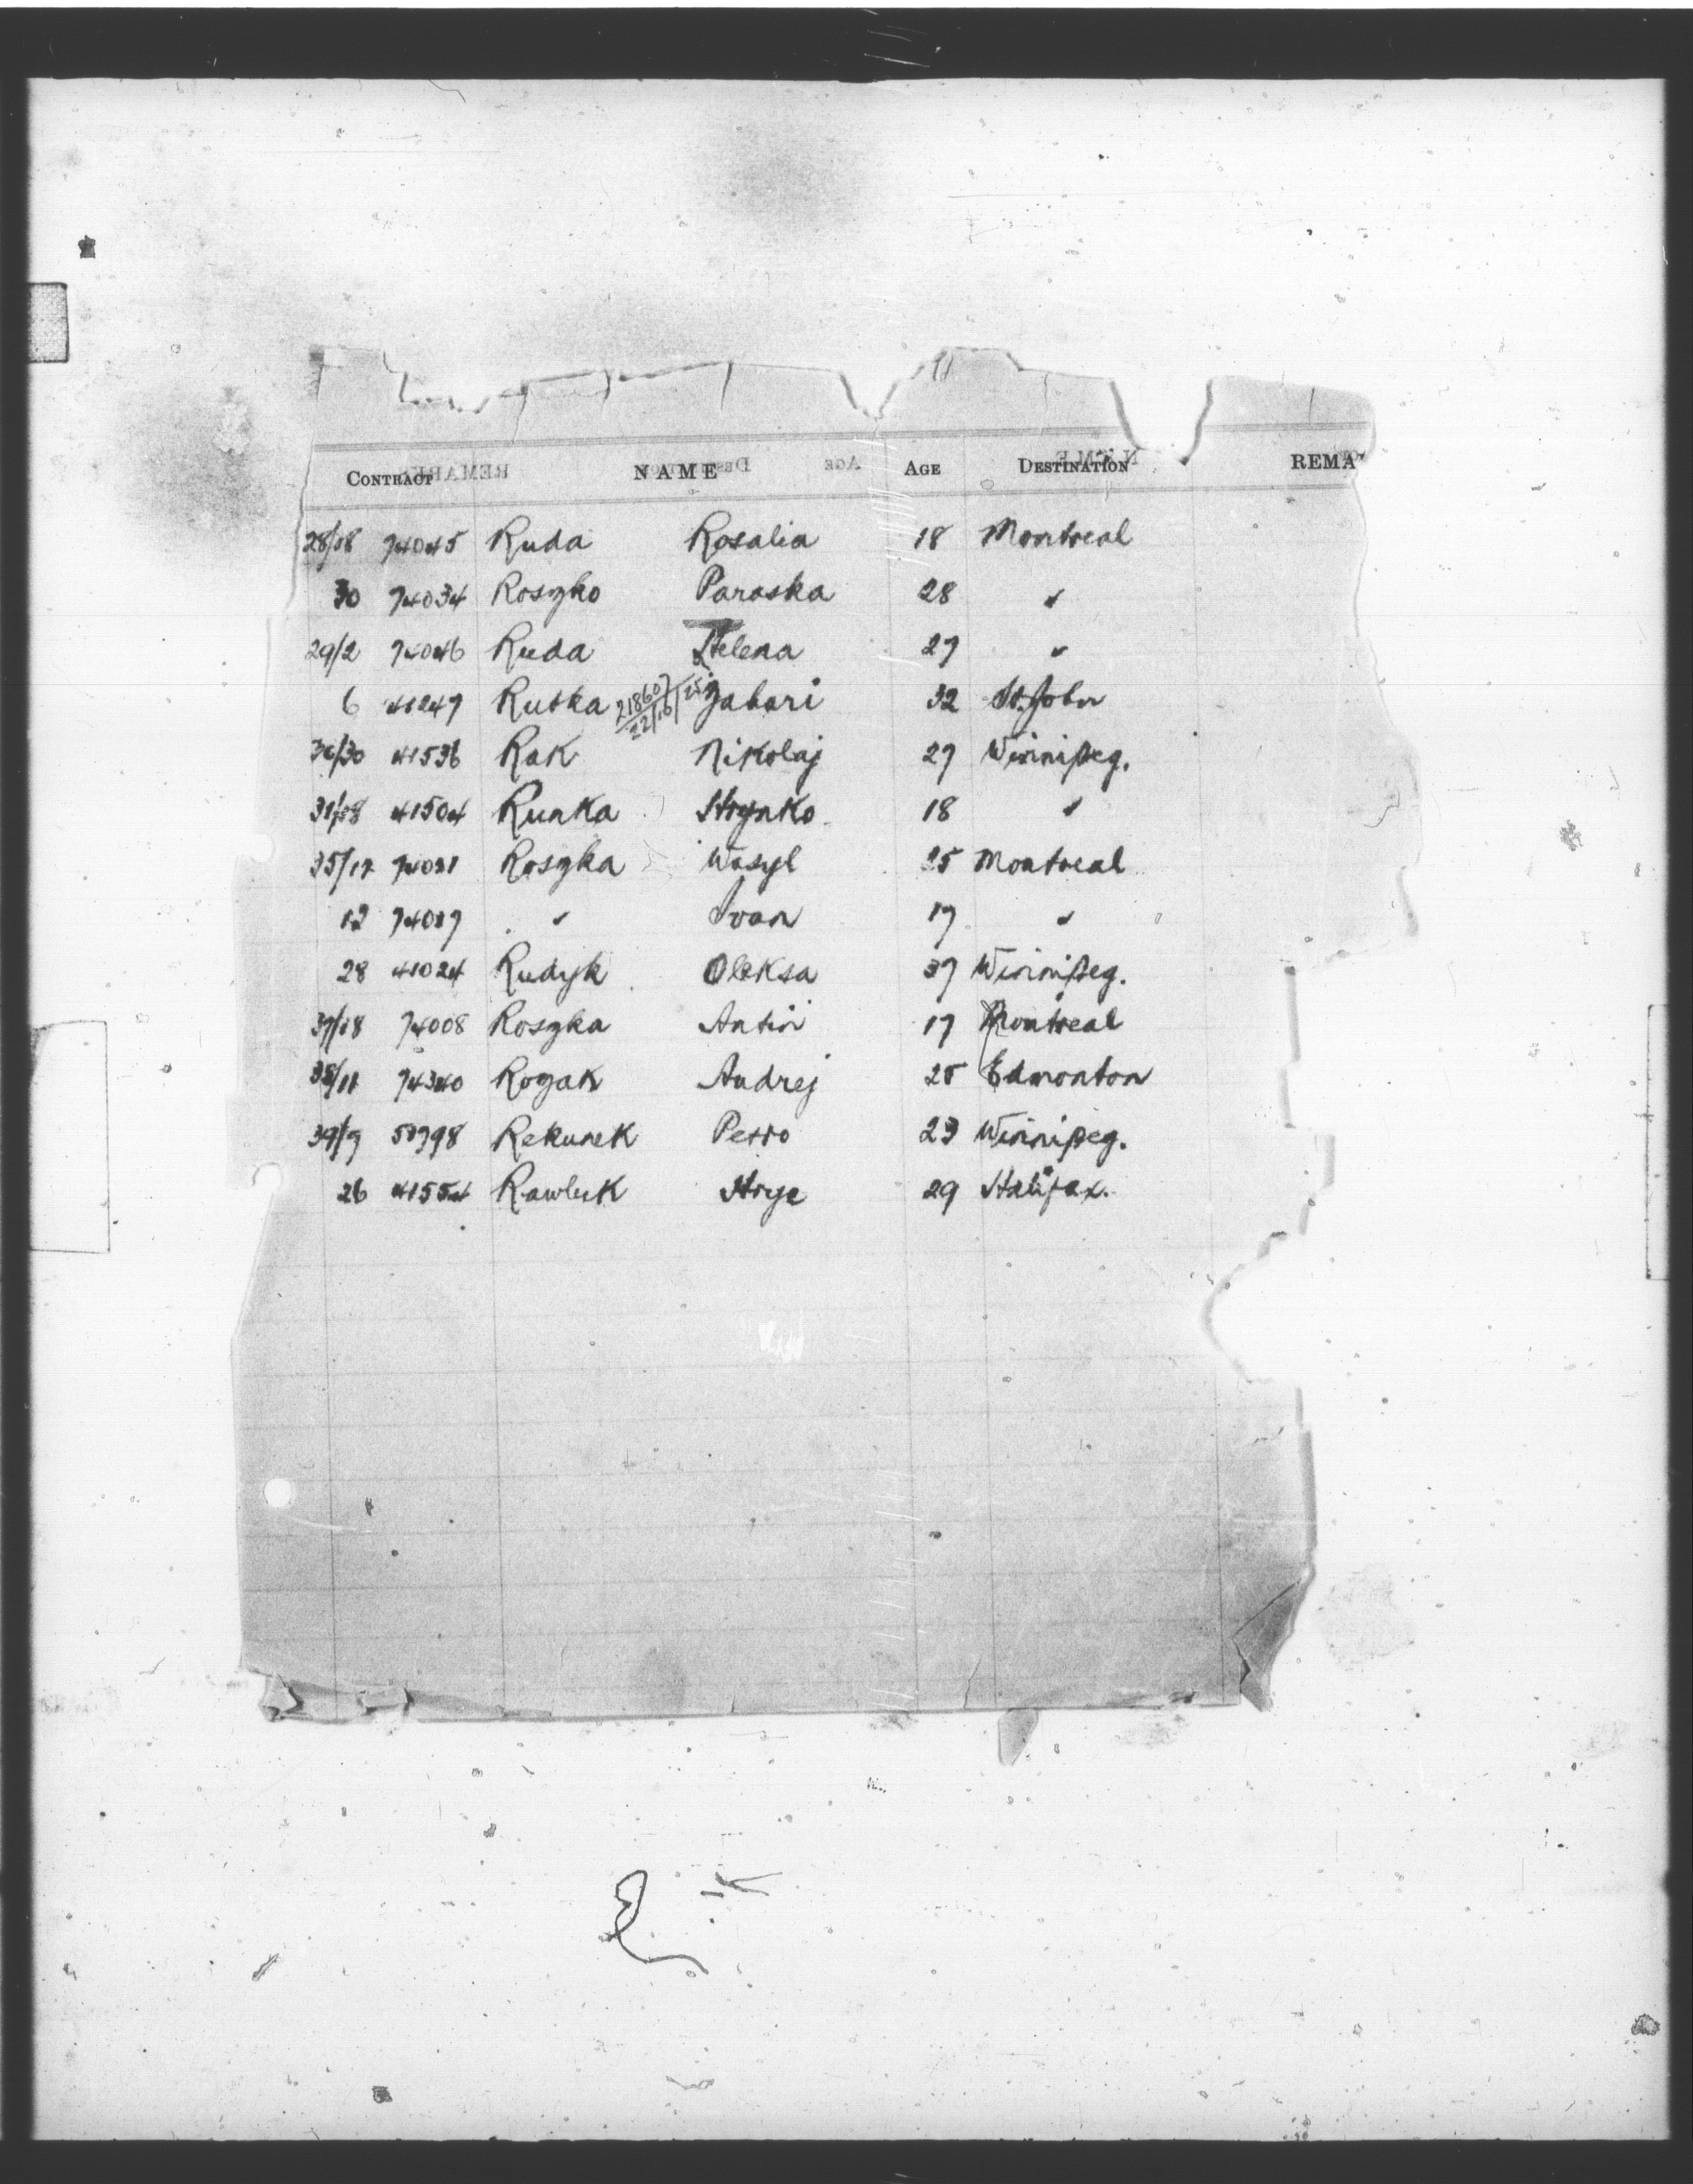 CONTRACT NAME AGE DESTINATION REMA
28/18 74045 Ruda Rosalia 18 Montreal
30 74034 Roszko Paraska 28 "
29/2 74046 Ruda Helena 27 "
6 41247 Rutka 218607 22/16/25 Zahari 32 St. John
30/30 41536 Rak Nikolaj 27 Winnipeg.
31/18 41504 Runka Hrynko 18 "
35/17 74021 Roszka Wasyl 25 Montreal
12 74017 " Ivan 17 "
28 41024 Rudyk Oleksa 37 Winnipeg.
37/18 74008 Roszka Antin 17 Montreal
38/11 74340 Rozak Andrej 25 Edmonton
39/7 50798 Rekunek Petro 23 Winnipeg.
26 41554 Rawluk Hryc 29 Halifax.